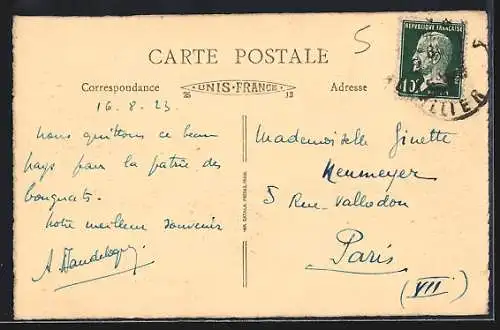 5
CARTE POSTALE
REPUBLIQUE FRANÇAISE
10c
Correspondance
UNIS-FRANCE
25 13
Adresse
16.8.23
nous quittons ce beau
pays pour la patrie des
bouquets.
notre meilleur souvenir
Mademoiselle Ginette
Neumeyer
5 Rue Valladon
Paris
(VII)